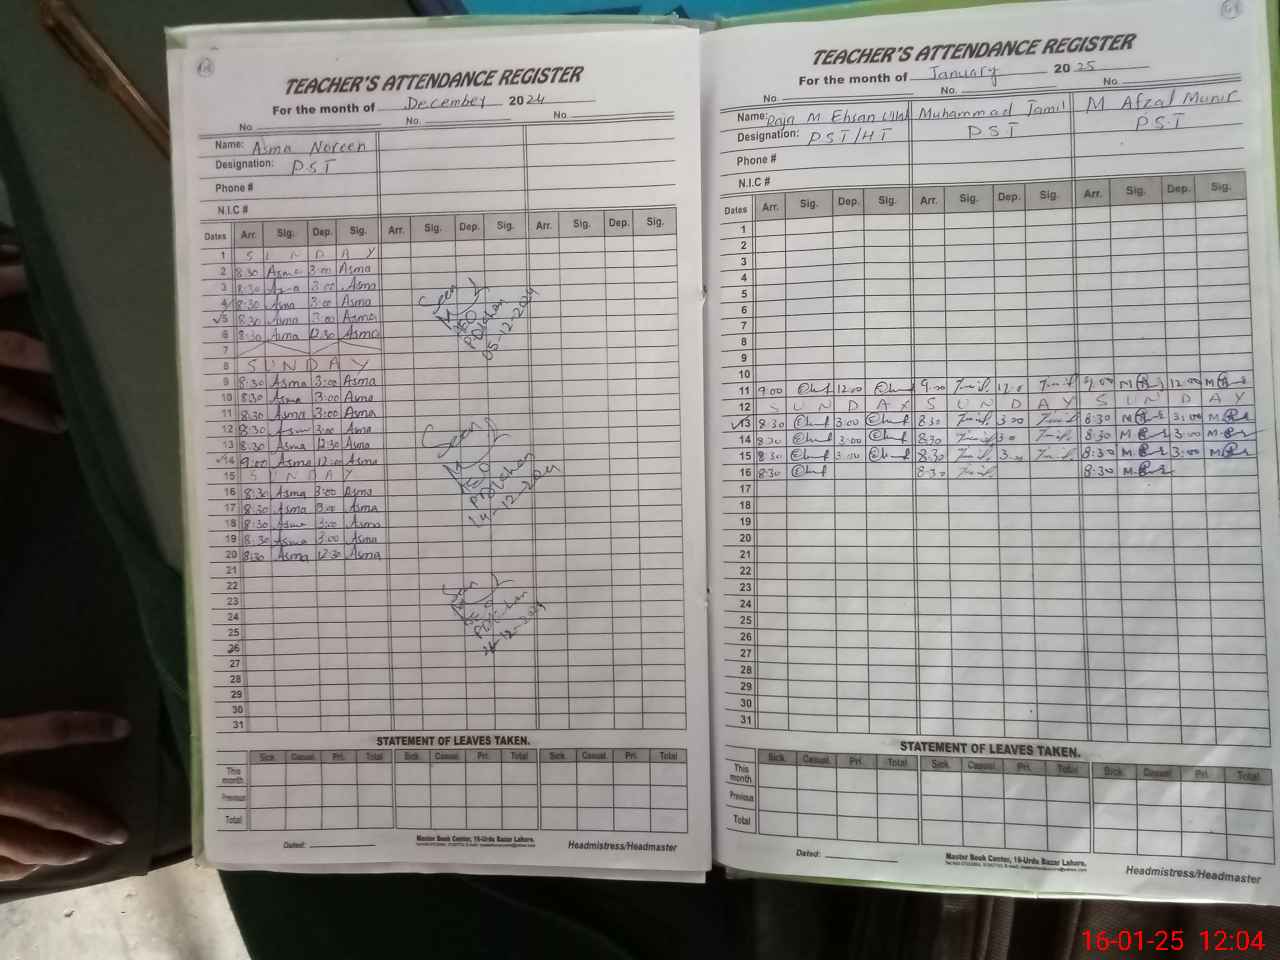 TEACHER'S ATTENDANCE REGISTER
For the month of December 2024
No. No. No.
Name: Asma Noreen
Designation: P.S.T
Phone #
N.I.C #
Dates Arr. Sig. Dep. Sig. Arr. Sig. Dep. Sig. Arr. Sig. Dep. Sig.
1 S U N D A Y
2 8:30 Asma 3:00 Asma
3 8:30 Asma 3:00 Asma
4 8:30 Asma 3:00 Asma
5 8:30 Asma 3:00 Asma
6 8:30 Asma 12:30 Asma
7
8 S U N D A Y
9 8:30 Asma 3:00 Asma
10 8:30 Asma 3:00 Asma
11 8:30 Asma 3:00 Asma
12 8:30 Asma 3:00 Asma
13 8:30 Asma 12:30 Asma
14 9:00 Asma 12:00 Asma
15 S U N D A Y
16 8:30 Asma 3:00 Asma
17 8:30 Asma 3:00 Asma
18 8:30 Asma 3:00 Asma
19 8:30 Asma 3:00 Asma
20 8:30 Asma 12:30 Asma
21
22
23
24
25
26
27
28
29
30
31
Seen
05-12-2024
Seen
14-12-2024
Seen
STATEMENT OF LEAVES TAKEN.
Sick Casual Pri. Total Sick. Casual. Pri. Total Sick. Casual Pri. Total
This month
Previous
Total
Dated:
Master Book Center, 16-Urdu Bazar Lahore.
Headmistress/Headmaster
TEACHER'S ATTENDANCE REGISTER
For the month of January 2025
No. No. No.
Name: Raja M Ehsan Muhammad Jamil M Afzal Munir
Designation: P.S.T/HT P.S.T P.S.T
Phone #
N.I.C #
Dates Arr. Sig. Dep. Sig. Arr. Sig. Dep. Sig. Arr. Sig. Dep. Sig.
1
2
3
4
5
6
7
8
9
10
11 9:00 12:00 9:00 12:0 9:00 12:00
12 S U N D A Y S U N D A Y S U N D A Y
13 8:30 3:00 8:30 3:00 8:30 3:00
14 8:30 3:00 8:30 3:0 8:30 3:00
15 8:30 3:00 8:30 3:0 8:30 3:00
16 8:30 8:30 8:30
17
18
19
20
21
22
23
24
25
26
27
28
29
30
31
STATEMENT OF LEAVES TAKEN.
Sick. Casual. Pri. Total Sick. Casual. Pri. Total Sick. Casual Pri. Total.
This month
Previous
Total
Dated:
Master Book Center, 16-Urdu Bazar Lahore.
Headmistress/Headmaster
16-01-25 12:04